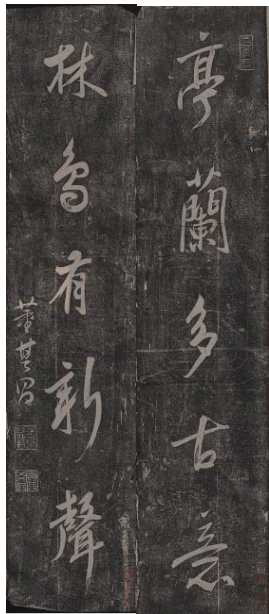 亭蘭多古意
林鳥有新聲
董其昌